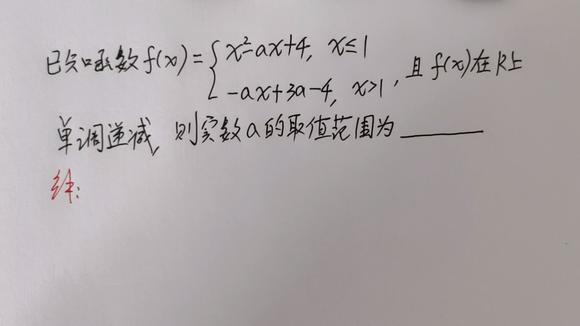 已知函数f(x)={x²-ax+4, x≤1
-ax+3a-4, x>1, 且f(x)在R上
单调递减, 则实数a的取值范围为______
解: